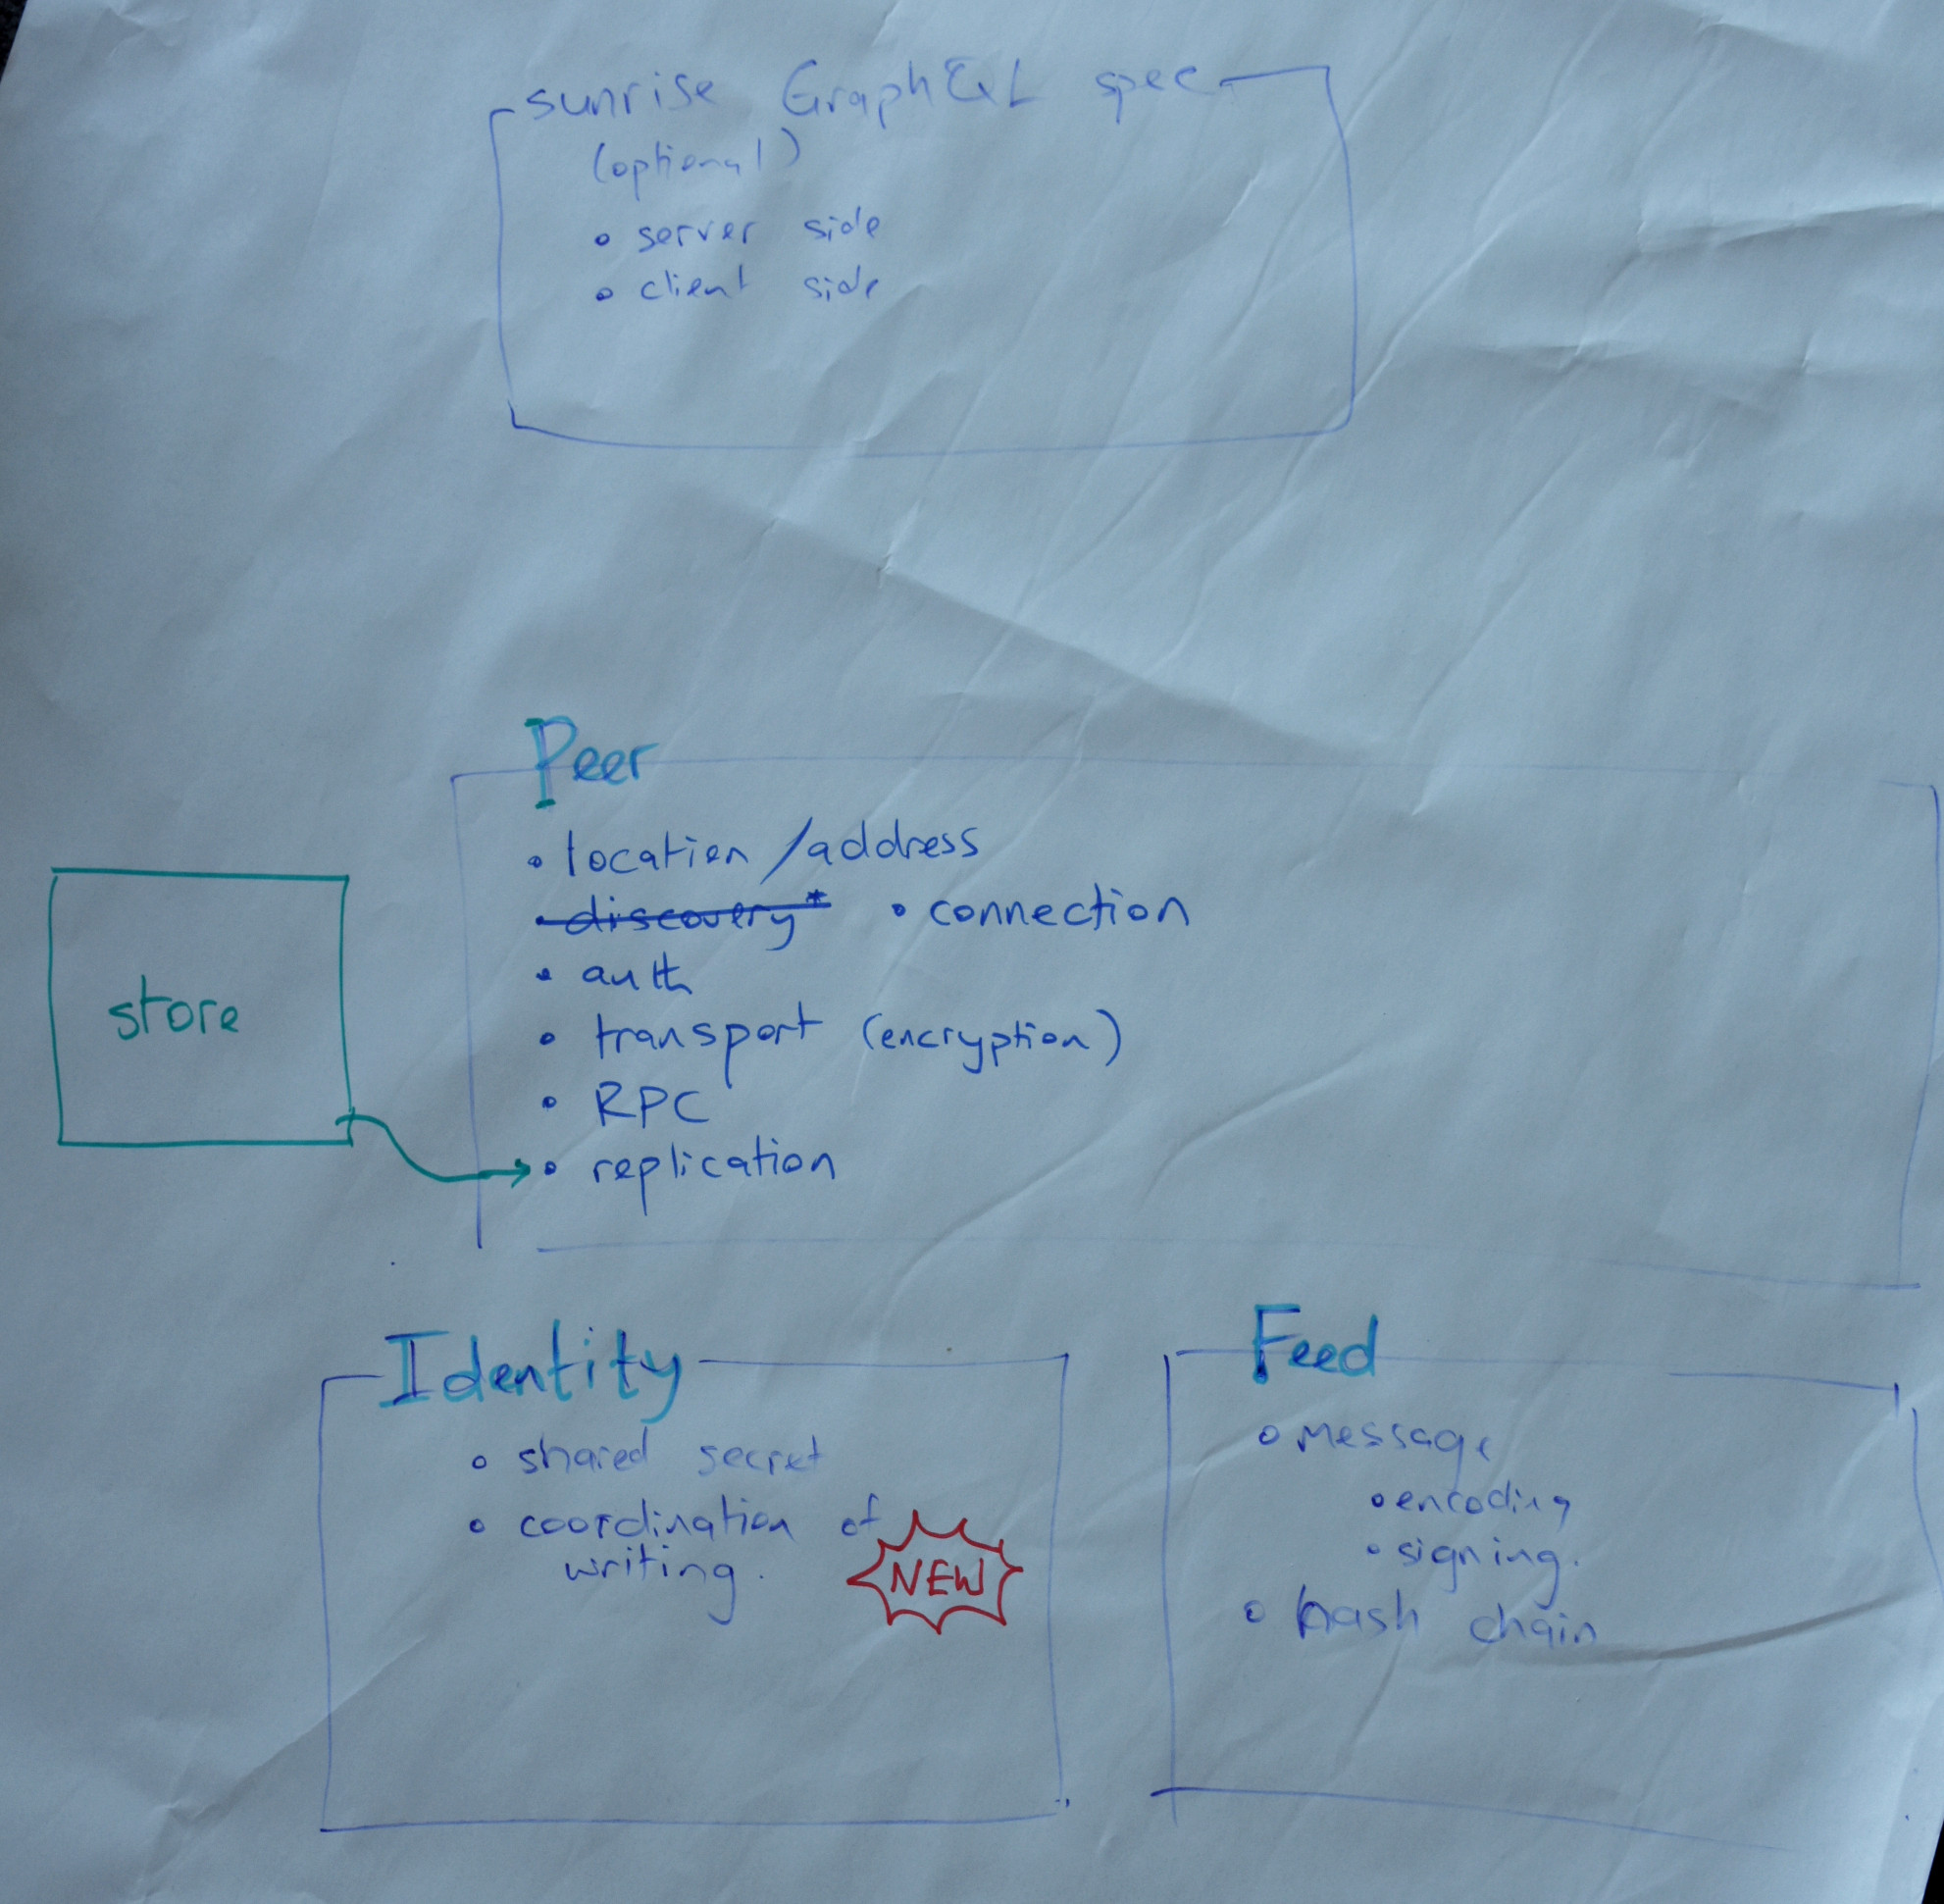 sunrise GraphQL spec
(optional)
• server side
• client side
Peer
• location/address
• discovery* • connection
• auth
• transport (encryption)
• RPC
• replication
store
Identity
• shared secret
• coordination of
writing.
NEW
Feed
• message
• encoding
• signing.
• hash chain